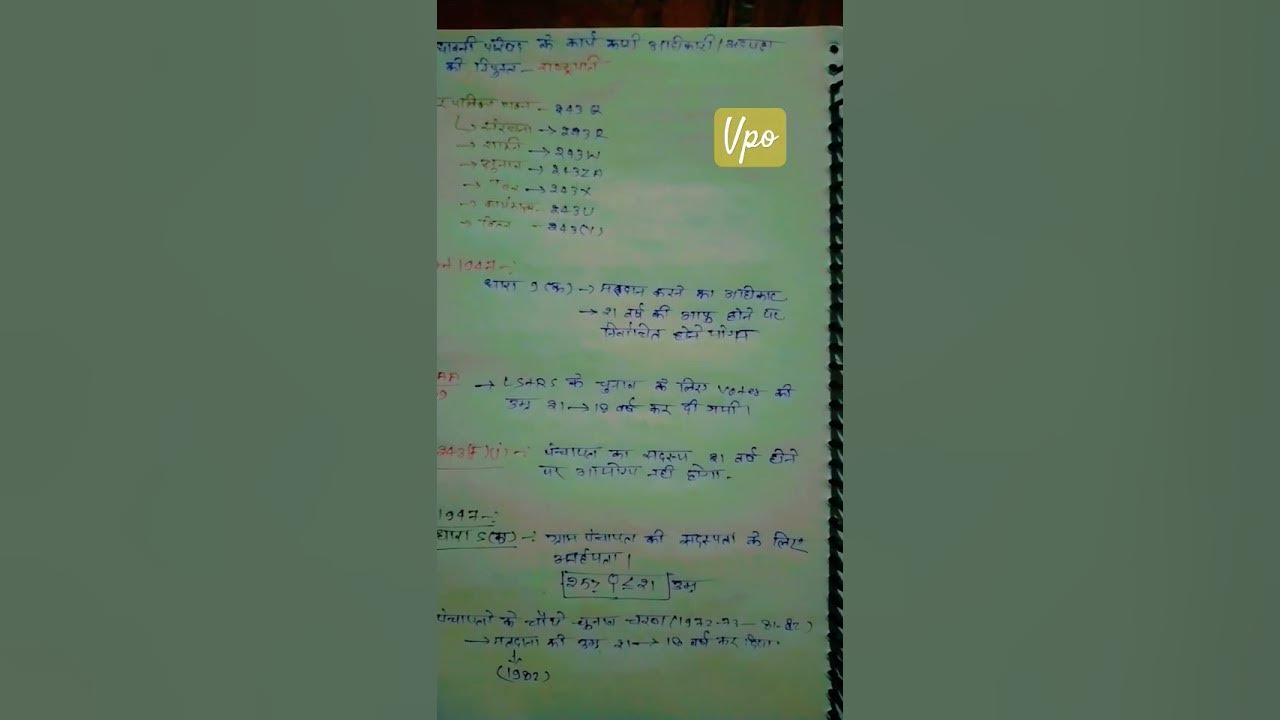 छावनी परिषद के कार्य कारी अधिकारी / अध्यक्ष
की नियुक्त – राष्ट्रपति
Vpo
नगरपालिका गठन – 243 Q
→ संरचना → 243R
→ शक्ति → 243W
→ चुनाव → 243ZA
→ 243X
→ कार्यकाल – 243U
→ वित्त – 243(Y)
1947 –:
धारा 9 (क) → मतदान करने का अधिकार
→ 21 वर्ष की आयु होने पर
निर्वाचित होने योग्य
→ LS+RS के चुनाव के लिए Voter की
उम्र 21 → 18 वर्ष कर दी गयी।
243(F)(1) –: पंचायत का सदस्य 21 वर्ष होने
पर अयोग्य नही होगा.
1947 –:
धारा 5(क) –: ग्राम पंचायत की सदस्यता के लिए
अर्हयता।
उम्र
पंचायतो के चौथे चुनाव चरण (1972-73 – 81-82)
→ मतदाता की उम्र 21 → 18 वर्ष कर दिया.
(1982)